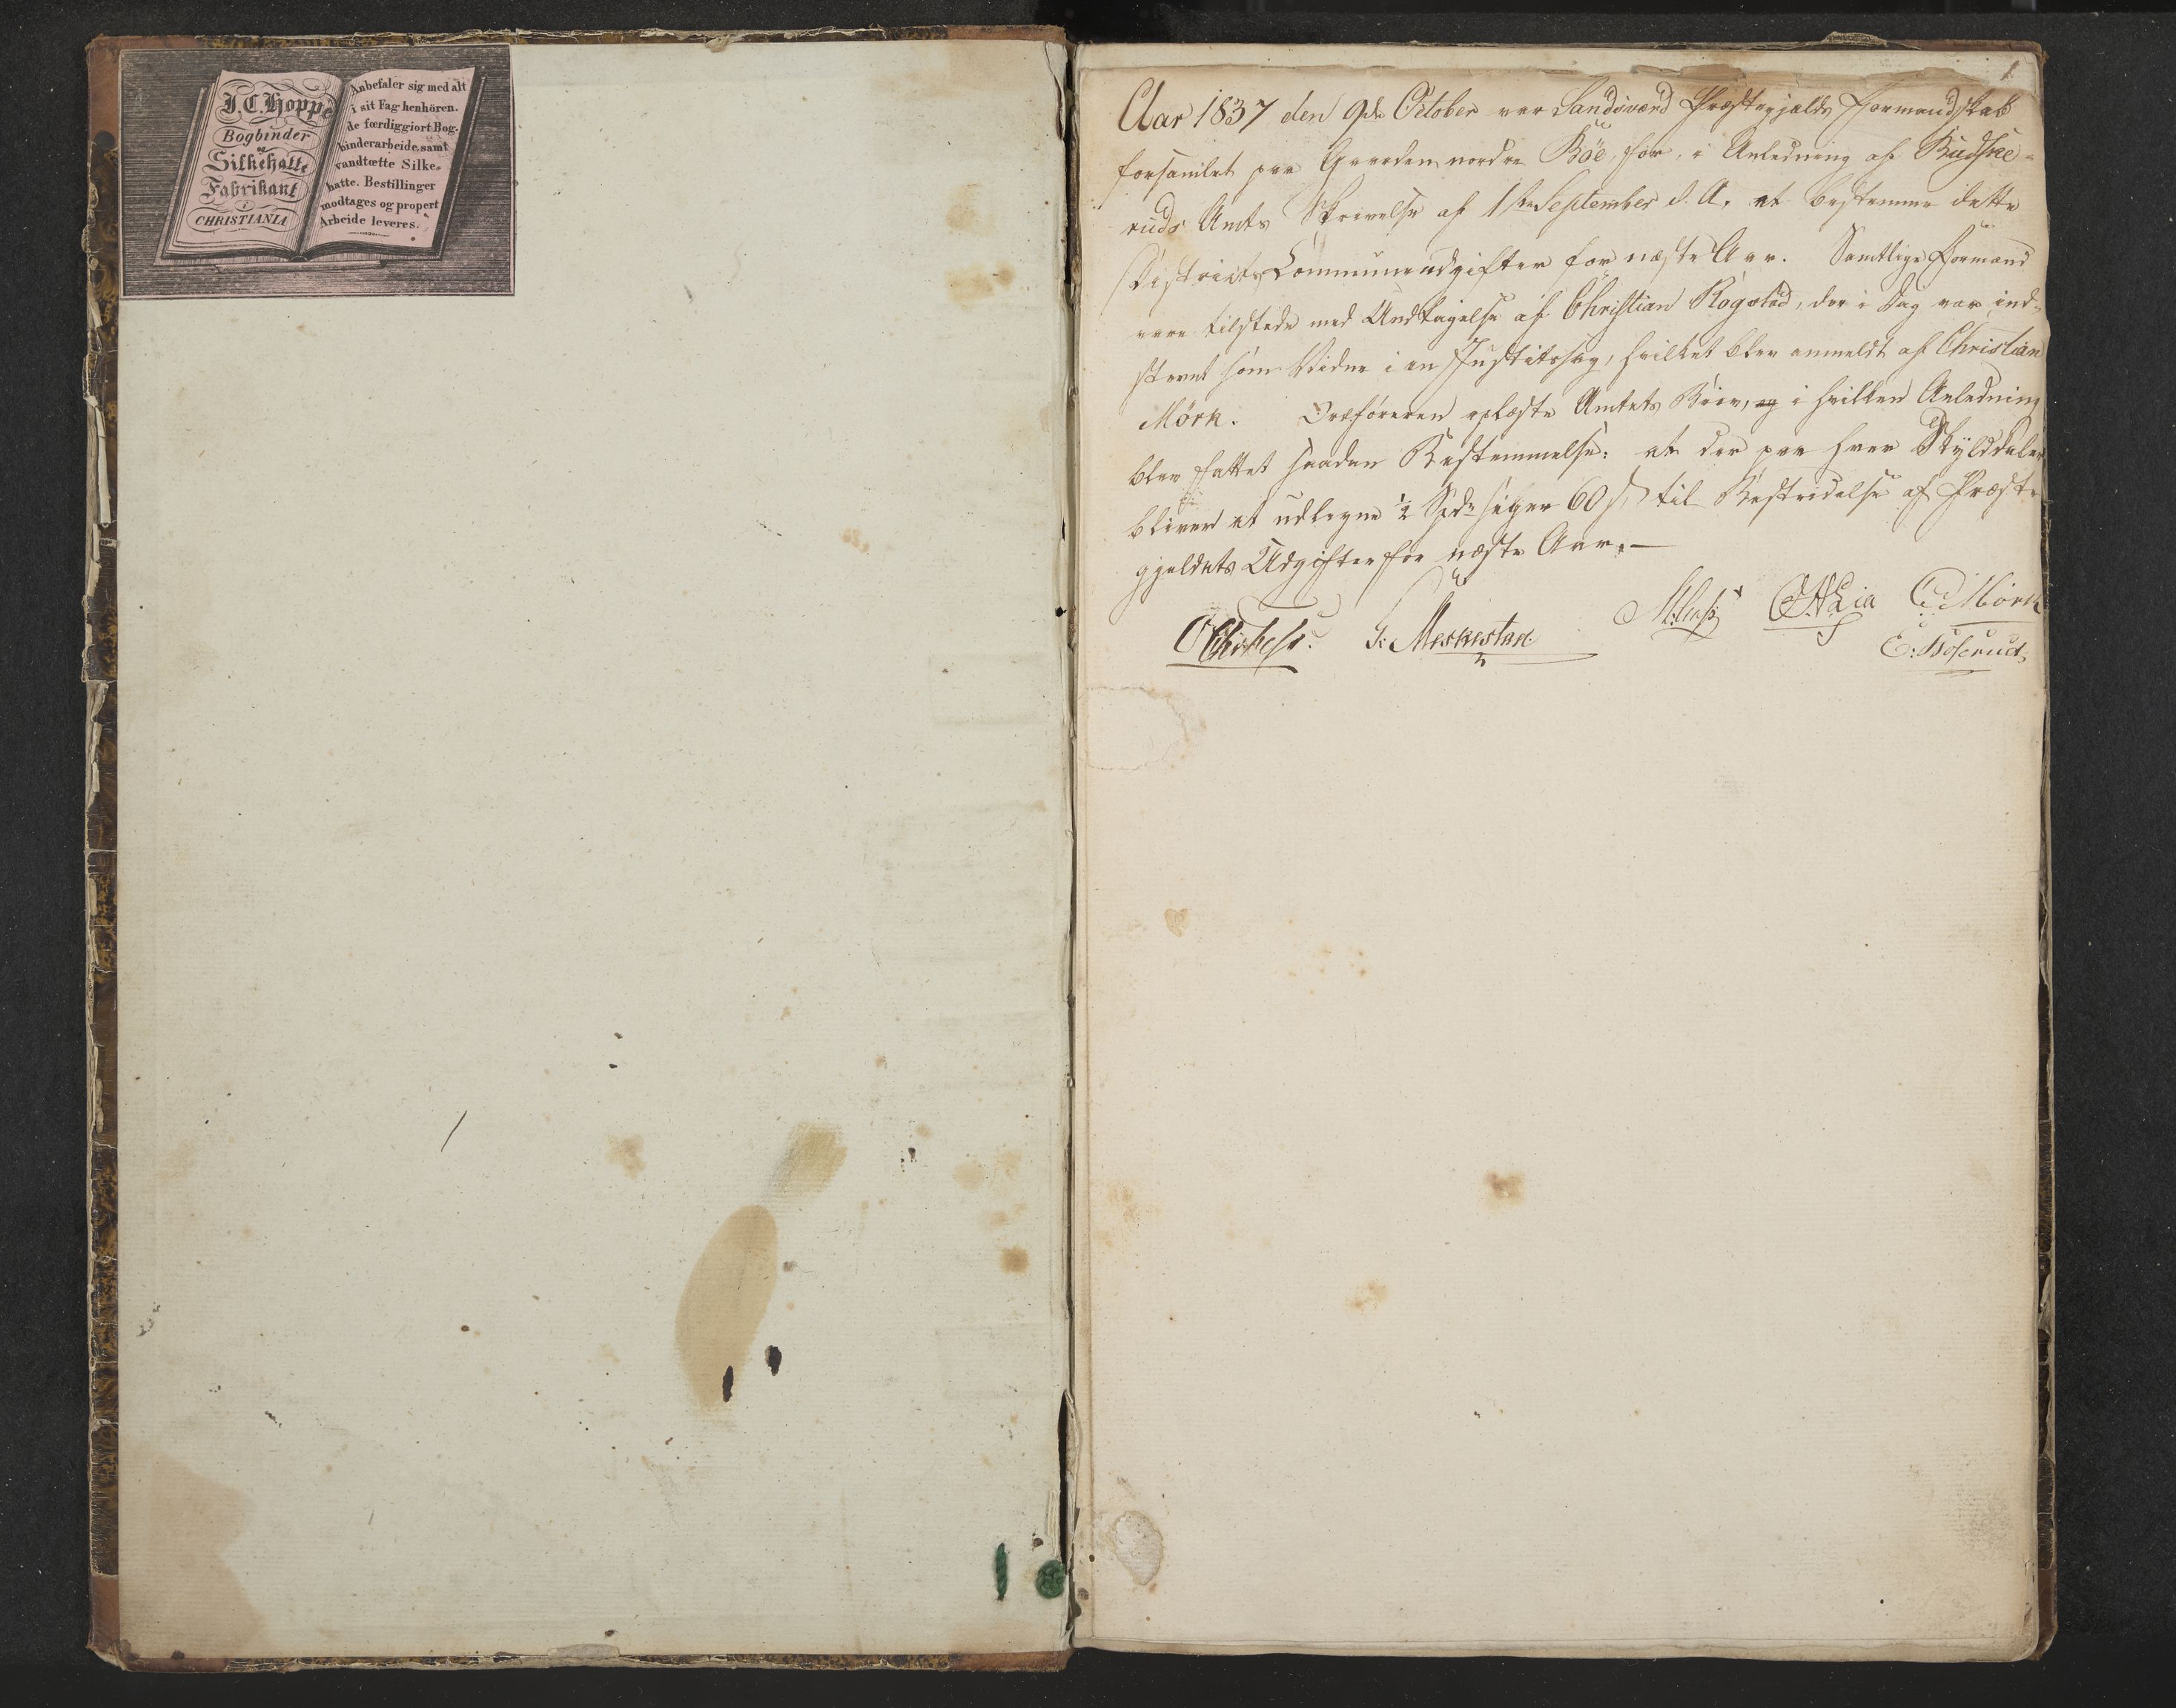 J. C. Hoppe
Bogbinder
og
Silkehatte
Fabrikant
i
CHRISTIANIA
Anbefaler sig med alt
i sit Fag henhören-
de færdiggiort Bog-
binderarbeide, samt
vandtætte Silke-
hatte. Bestillinger
modtages og propert
Arbeide leveres.
1
Aar 1837 den 9de October var Sandsværd Præstegjelds Formandskab
forsamlet paa Gaarden nordre Böe, for, i Anledning af Budske-
ruds Amts Skrivelse af 1ste September d. A. at bestemme dette
Districts Communeudgifter for næste Aar. Samtlige Formænd
vare tilstede med Undtagelse af Christian Rogstad, der i Dag var ind-
stevnt som Vidne i en Justitssag, hvilket blev anmeldt af Christian
Mörk. Ordföreren oplæste Amtets Brev, og i hvilken Anledning
blev fattet saadan Bestemmelse: at der paa hver Skylddaler
bliver at udlegne ½ Spd siger 60 s til Bestridelse af Præste
gjeldets Udgifter for næste Aar. —
Meskestad
Lia C Mörk